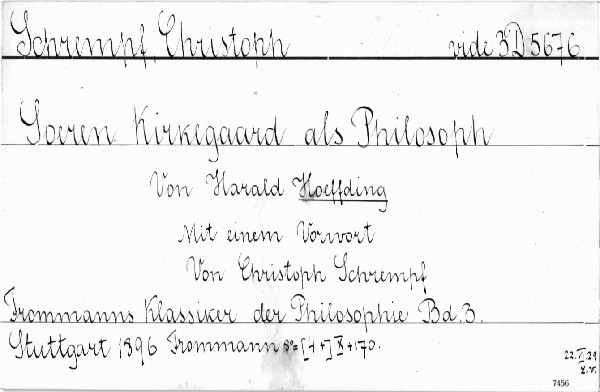 Schrempf, Christoph vide 3D5676
Soeren Kirkegaard als Philosoph
Von Harald Hoeffding
Mit einem Vorwort
Von Christoph Schrempf
Frommanns Klassiker der Philosophie Bd. 3.
Stuttgart 1896 Frommann 8°=[4+] X+170.
22. 29
7456